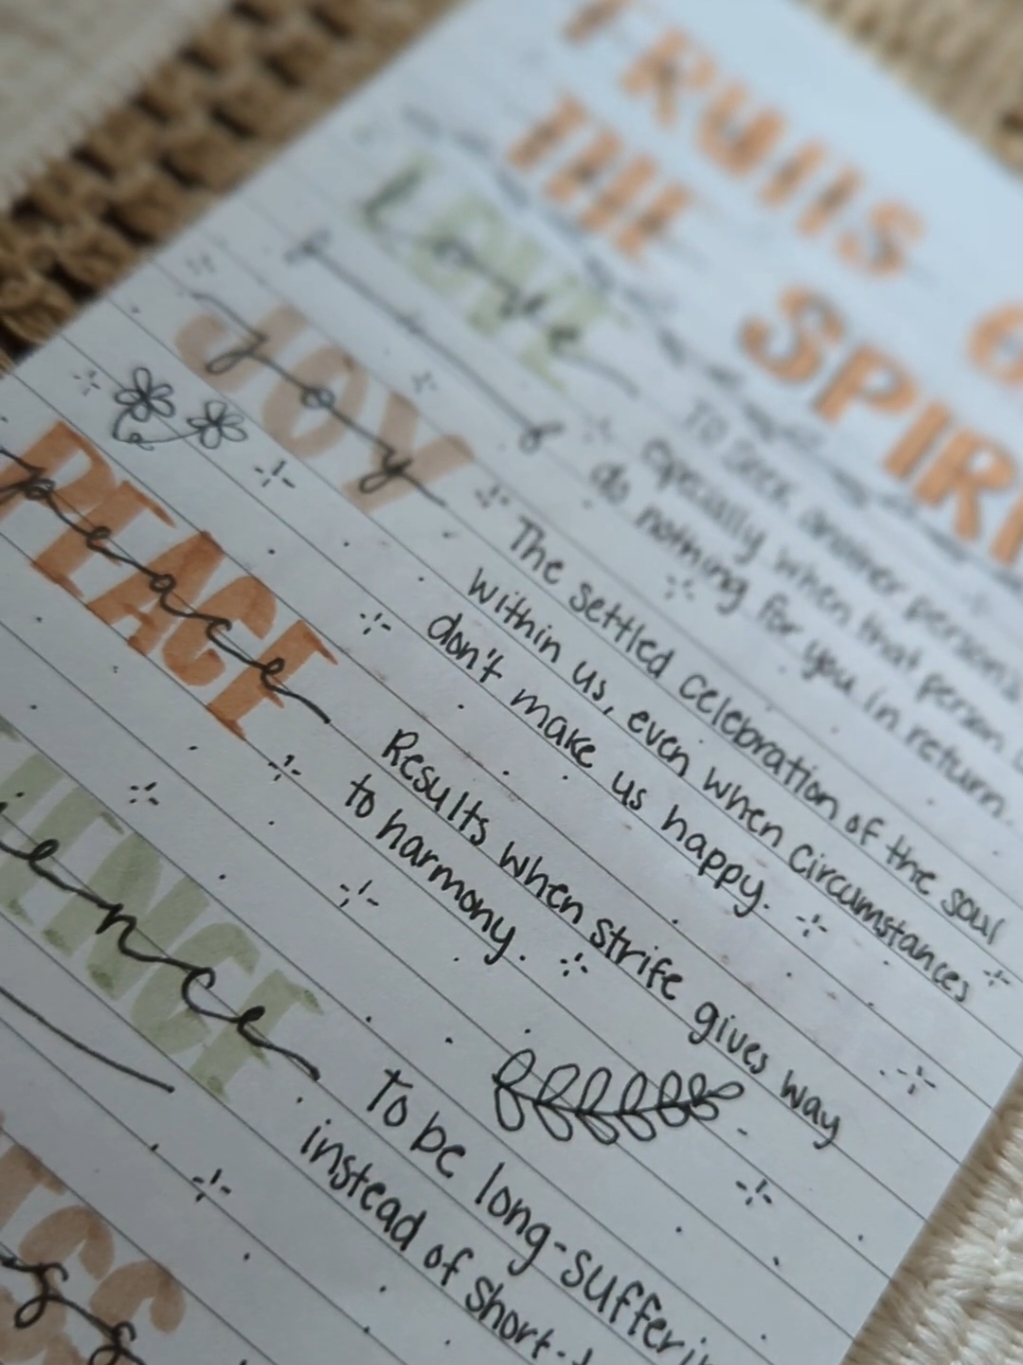 FRUITS
THE
SPIRI
LOVE
love
To seek another person's
especially when that person
do nothing for you in return.
JOY
joy
The settled celebration of the soul
within us, even when circumstances
don't make us happy.
PEACE
peace
Results when strife gives way
to harmony.
IENCE
ience
To be long-sufferin
instead of short-t
ESS